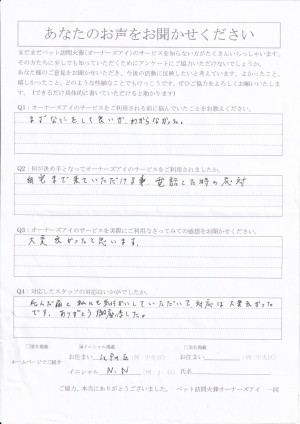 あなたのお声をお聞かせください
まだまだペット訪問火葬(オーナーズアイ)のサービスを知らない方がたくさんいらっしゃいます。
その方たちに少しでも知っていただくためにアンケートにご協力いただけないでしょうか。
あなた様のご意見をお聞かせいただき、今後の活動に反映したいと考えています。よかったこと、
嬉しかったこと、どのような些細なことでもけっこうです。ぜひご協力をよろしくお願いいたしま
す。(できるだけ具体的に書いていただけると助かります)
Q1：オーナーズアイのサービスをご利用される前に悩んでいたことをお教えください。
まずなにをして良いか、わからなかった。
Q2：何が決め手となってオーナーズアイのサービスを利用されましたか。
自宅まで来ていただける事 電話した時の応対
Q3：オーナーズアイのサービスを実際にご利用なさってみての感想をお聞かせください。
大変良かったと思います。
Q4：対応したスタッフの対応はいかがでしたか。
死んだ猫と私にも気付かいしていただいて、対応は大変良かった
です。ありがとう御座居ました。
ホームページでご紹介
お住まい 江別市
お住まい
イニシャル N.N
氏名
ご協力、本当にありがとうございました。 ペット訪問火葬オーナーズアイ 一同